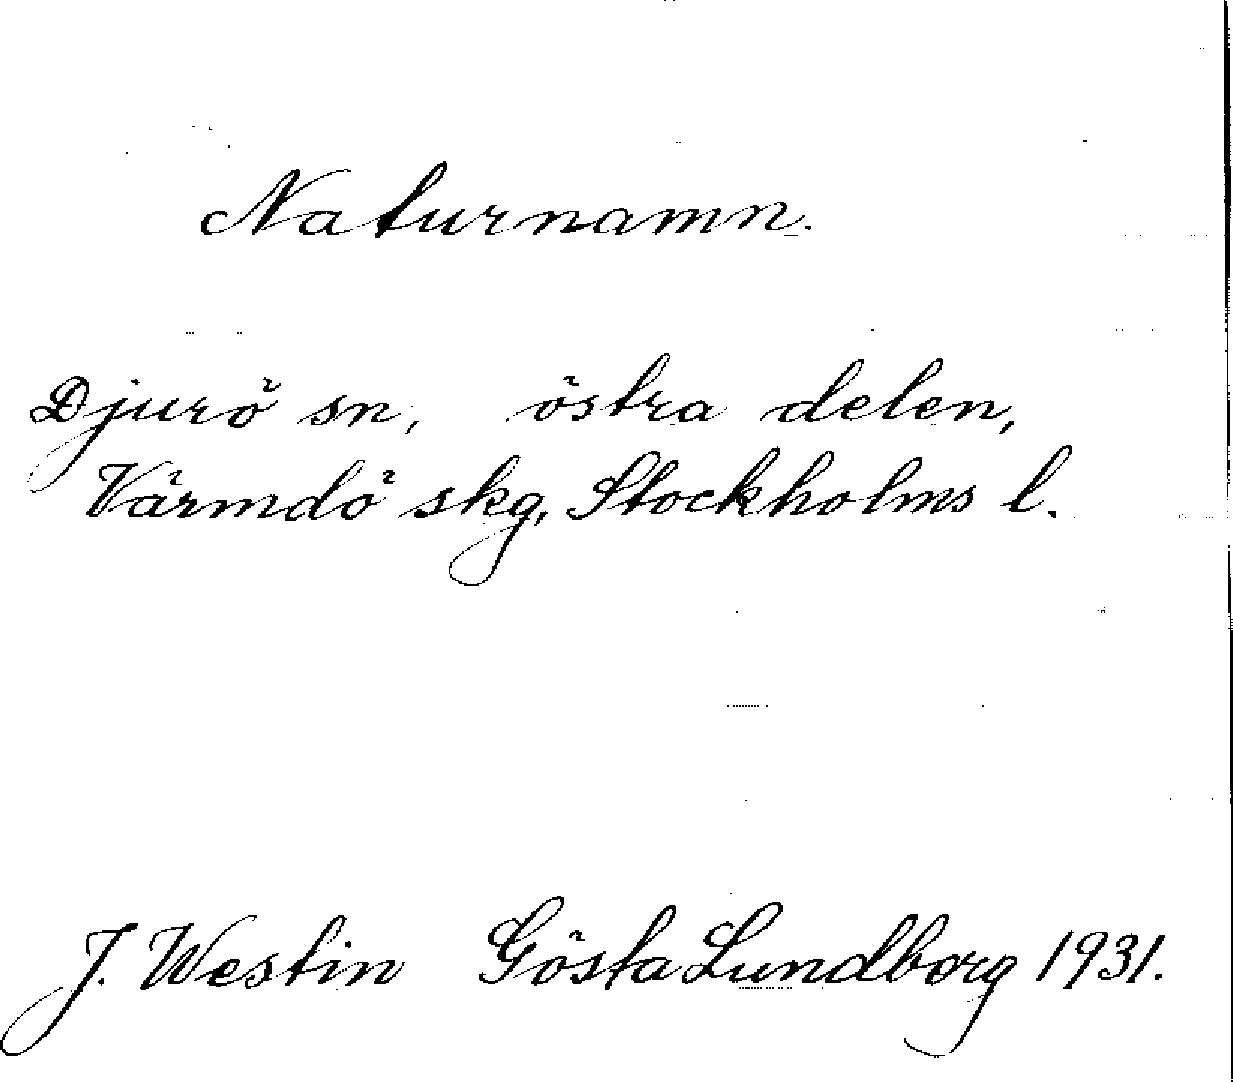 Naturnamn.
Djurö sn, östra delen,
Värmdö skg, Stockholms l.
J. Westin Gösta Lundborg 1931.